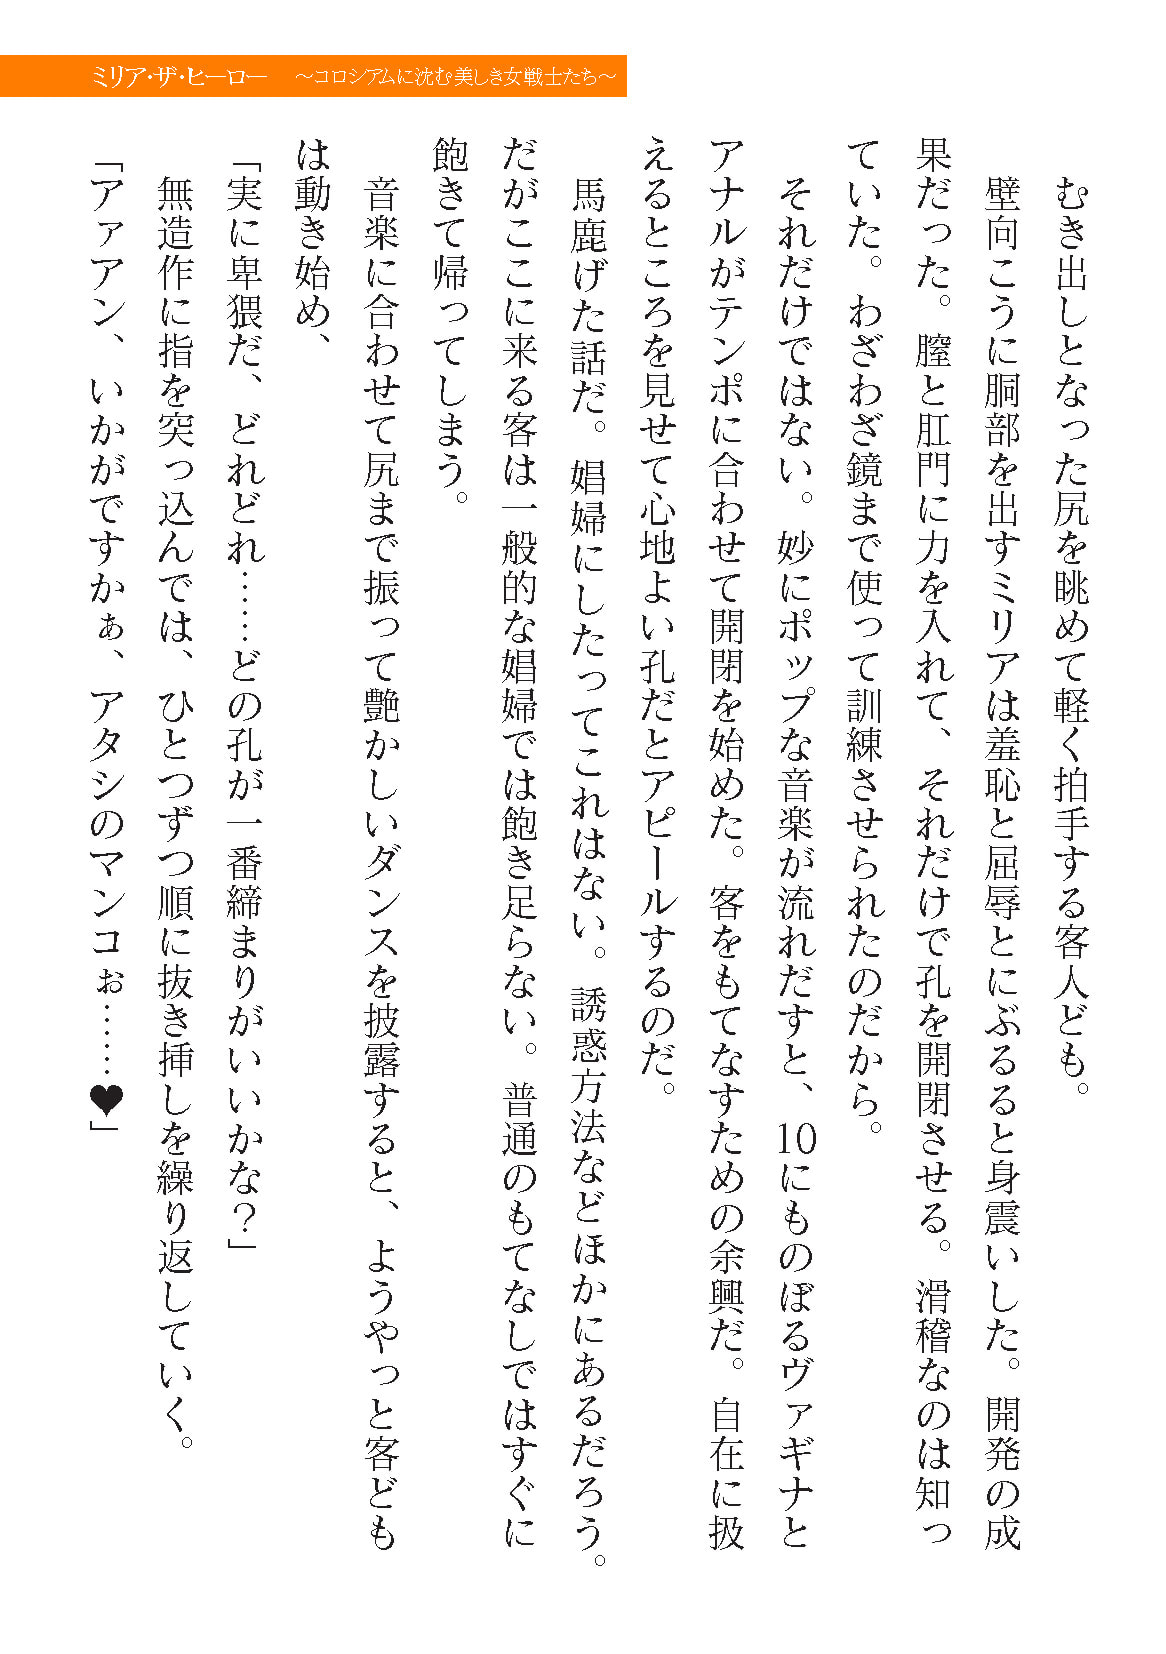 ミリア・ザ・ヒーロー　～コロシアムに沈む美しき女戦士たち～
むき出しとなった尻を眺めて軽く拍手する客人ども。
壁向こうに胴部を出すミリアは羞恥と屈辱とにぶるると身震いした。開発の成
果だった。膣と肛門に力を入れて、それだけで孔を開閉させる。滑稽なのは知っ
ていた。わざわざ鏡まで使って訓練させられたのだから。
それだけではない。妙にポップな音楽が流れだすと、10にものぼるヴァギナと
アナルがテンポに合わせて開閉を始めた。客をもてなすための余興だ。自在に扱
えるところを見せて心地よい孔だとアピールするのだ。
馬鹿げた話だ。娼婦にしたってこれはない。誘惑方法などほかにあるだろう。
だがここに来る客は一般的な娼婦では飽き足らない。普通のもてなしではすぐに
飽きて帰ってしまう。
音楽に合わせて尻まで振って艶かしいダンスを披露すると、ようやっと客ども
は動き始め、
「実に卑猥だ、どれどれ……どの孔が一番締まりがいいかな？」
無造作に指を突っ込んでは、ひとつずつ順に抜き挿しを繰り返していく。
「アァアン、いかがですかぁ、アタシのマンコぉ……♥」